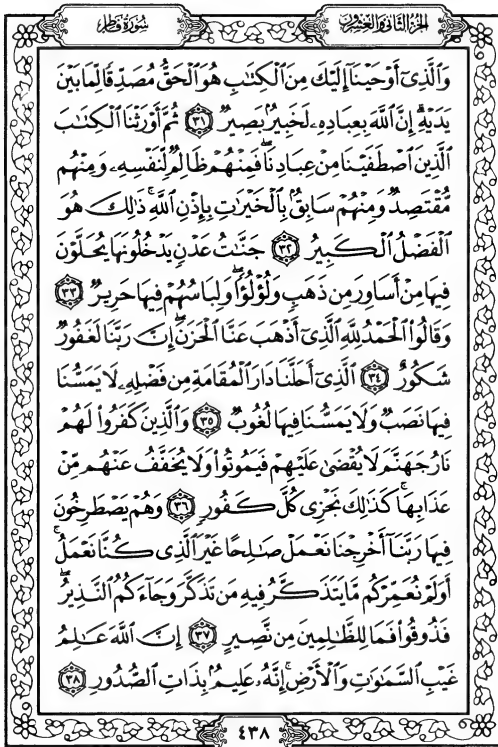 سُورَةُ فَاطِرٍ الجُزْءُ الثَّانِي وَالعِشْرُونَ
وَٱلَّذِىٓ أَوْحَيْنَآ إِلَيْكَ مِنَ ٱلْكِتَٰبِ هُوَ ٱلْحَقُّ مُصَدِّقًا لِّمَا بَيْنَ
يَدَيْهِ ۗ إِنَّ ٱللَّهَ بِعِبَادِهِۦ لَخَبِيرٌۢ بَصِيرٌ ٣١ ثُمَّ أَوْرَثْنَا ٱلْكِتَٰبَ
ٱلَّذِينَ ٱصْطَفَيْنَا مِنْ عِبَادِنَا ۖ فَمِنْهُمْ ظَالِمٌ لِّنَفْسِهِۦ وَمِنْهُم
مُّقْتَصِدٌ وَمِنْهُمْ سَابِقٌۢ بِٱلْخَيْرَٰتِ بِإِذْنِ ٱللَّهِ ۚ ذَٰلِكَ هُوَ
ٱلْفَضْلُ ٱلْكَبِيرُ ٣٢ جَنَّٰتُ عَدْنٍ يَدْخُلُونَهَا يُحَلَّوْنَ
فِيهَا مِنْ أَسَاوِرَ مِن ذَهَبٍ وَلُؤْلُؤًا ۖ وَلِبَاسُهُمْ فِيهَا حَرِيرٌ ٣٣
وَقَالُوا۟ ٱلْحَمْدُ لِلَّهِ ٱلَّذِىٓ أَذْهَبَ عَنَّا ٱلْحَزَنَ ۖ إِنَّ رَبَّنَا لَغَفُورٌ
شَكُورٌ ٣٤ ٱلَّذِىٓ أَحَلَّنَا دَارَ ٱلْمُقَامَةِ مِن فَضْلِهِۦ لَا يَمَسُّنَا
فِيهَا نَصَبٌ وَلَا يَمَسُّنَا فِيهَا لُغُوبٌ ٣٥ وَٱلَّذِينَ كَفَرُوا۟ لَهُمْ
نَارُ جَهَنَّمَ لَا يُقْضَىٰ عَلَيْهِمْ فَيَمُوتُوا۟ وَلَا يُخَفَّفُ عَنْهُم مِّنْ
عَذَابِهَا ۚ كَذَٰلِكَ نَجْزِى كُلَّ كَفُورٍ ٣٦ وَهُمْ يَصْطَرِخُونَ
فِيهَا رَبَّنَآ أَخْرِجْنَا نَعْمَلْ صَٰلِحًا غَيْرَ ٱلَّذِى كُنَّا نَعْمَلُ ۚ
أَوَلَمْ نُعَمِّرْكُم مَّا يَتَذَكَّرُ فِيهِ مَن تَذَكَّرَ وَجَآءَكُمُ ٱلنَّذِيرُ ۖ
فَذُوقُوا۟ فَمَا لِلظَّٰلِمِينَ مِن نَّصِيرٍ ٣٧ إِنَّ ٱللَّهَ عَٰلِمُ
غَيْبِ ٱلسَّمَٰوَٰتِ وَٱلْأَرْضِ ۚ إِنَّهُۥ عَلِيمٌۢ بِذَاتِ ٱلصُّدُورِ ٣٨
٤٣٨